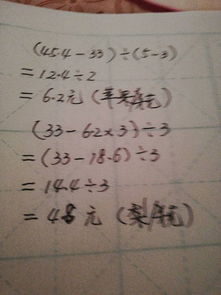 (45.4-33)÷(5-3)
=12.4÷2
=6.2元(苹果单元)
(33-6.2×3)÷3
=(33-18.6)÷3
=14.4÷3
=4.8元(梨/元)